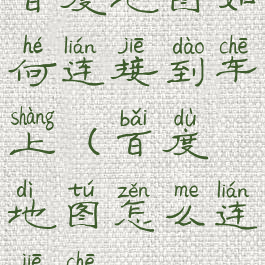 百度地图如
hé lián jiē dào chē
何连接到车
shàng bǎi dù
上（百度
dì tú zěn me lián
地图怎么连
jiē chē